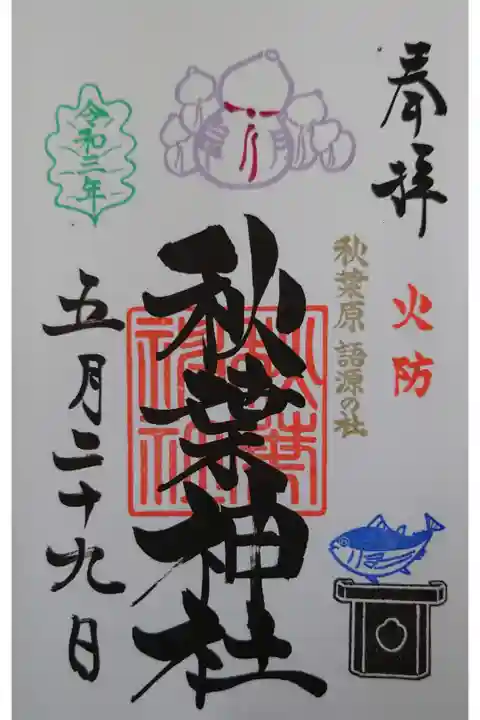 奉拝
火防
秋葉原 語源の社
秋葉神社
秋葉
神社
令和三年
五月二十九日